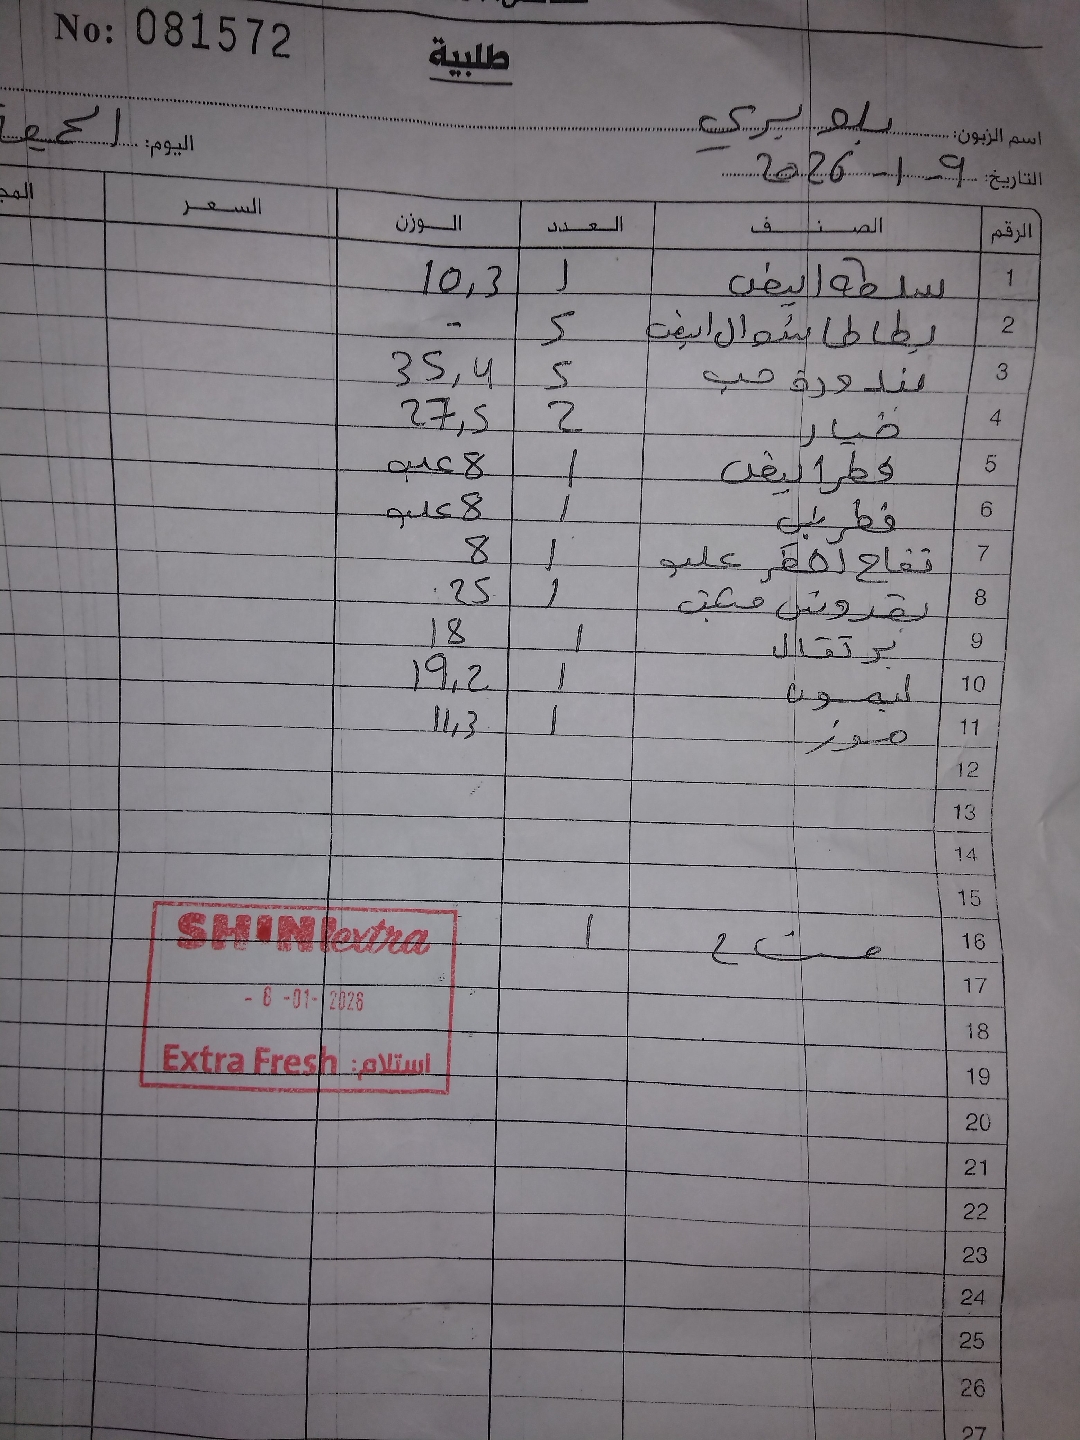 No: 081572
طلبية
اسم الزبون: بلو بيري
اليوم: الجمعة
التاريخ: 9-1-2026
الرقم الصنف العدد الوزن السعر
1 سلطة ابيض 1 10,3
2 بطاطا شوال ابيض 5 -
3 بندورة حب 5 35,4
4 خيار 2 27,5
5 فطر ابيض 1 8 علبه
6 فطر بني 1 8 علبه
7 تفاح اخضر علبه 1 8
8 بقدونس 1 25
9 برتقال 1 18
10 ليمون 1 19,2
11 موز 1 11,3
12
13
14
15
16 1
17
18
19
20
21
22
23
24
25
26
27
SHINI extra
- 8 -01- 2026
Extra Fresh استلام: